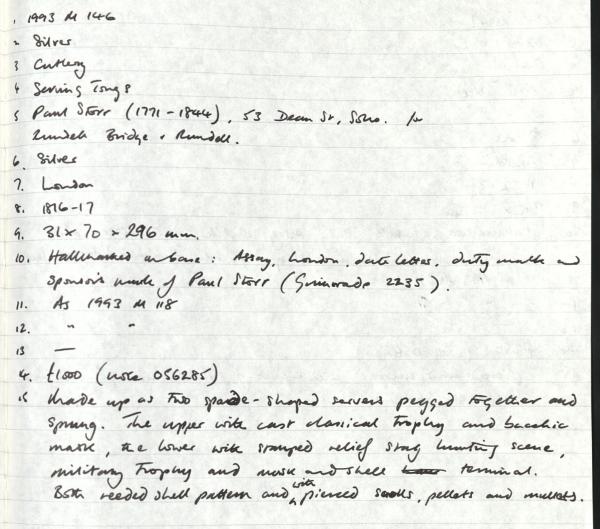 1 1993 M 146
2 Silver
3 Cutlery
4 Serving Tongs
5 Paul Storr (1771-1844), 53 Dean St, Soho. for
Rundell Bridge + Rundell.
6. Silver
7. London
8. 1816-17
9. 31 x 70 x 296 mm.
10. Hallmarked on base: Assay, London, date letter, duty mark and
sponsor's mark of Paul Storr (Grimwade 2235).
11. As 1993 M 118
12. " "
13 —
14. £1500 (note 056285)
15 Made up as two spade-shaped servers pegged together and
sprung. The upper with cast classical trophy and bacchic
mask, the lower with stamped relief stag hunting scene,
military trophy and mask and shell terminal.
Both reeded shell pattern and with pierced scrolls, pellets and mullets.